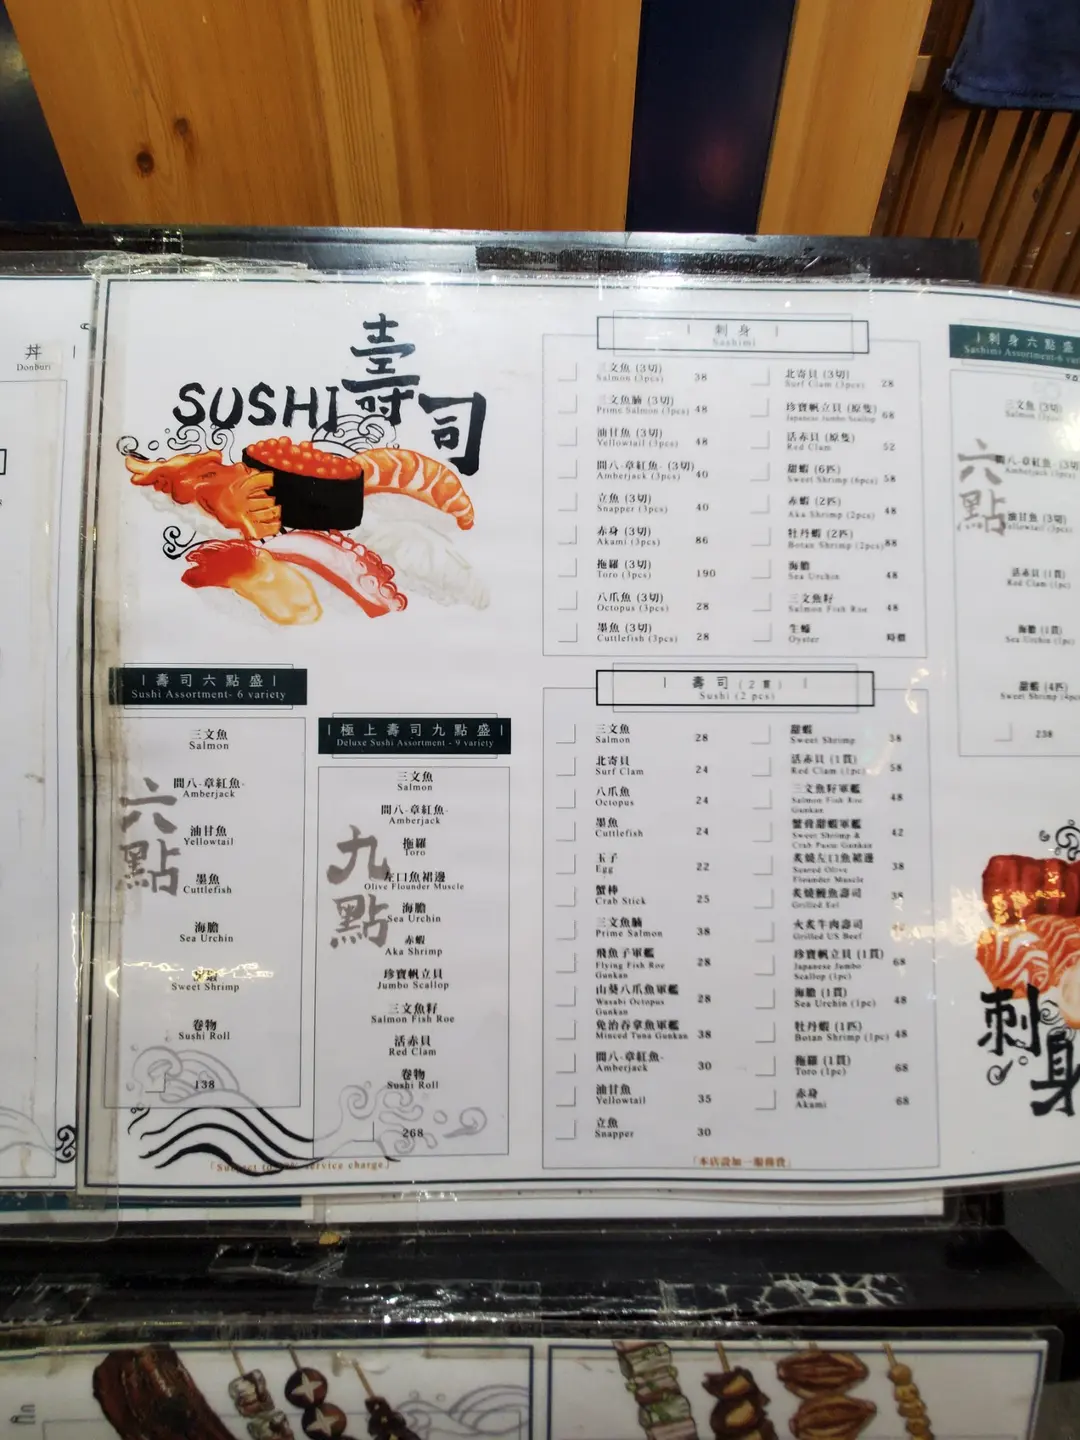 丼
Donburi
SUSHI 壽司
壽司六點盛
Sushi Assortment- 6 variety
六點
三文魚
Salmon
間八-章紅魚-
Amberjack
油甘魚
Yellowtail
墨魚
Cuttlefish
海膽
Sea Urchin
Sweet Shrimp
卷物
Sushi Roll
138
極上壽司九點盛
Deluxe Sushi Assortment - 9 variety
九點
三文魚
Salmon
間八-章紅魚-
Amberjack
拖羅
Toro
左口魚裙邊
Olive Flounder Muscle
海膽
Sea Urchin
赤蝦
Aka Shrimp
珍寶帆立貝
Jumbo Scallop
三文魚籽
Salmon Fish Roe
活赤貝
Red Clam
卷物
Sushi Roll
268
service charge」
刺身
Sashimi
三文魚 (3切)
Salmon (3pcs) 38
三文魚腩 (3切)
Prime Salmon (3pcs) 48
油甘魚 (3切)
Yellowtail (3pcs) 48
間八-章紅魚- (3切)
Amberjack (3pcs) 40
立魚 (3切)
Snapper (3pcs) 40
赤身 (3切)
Akami (3pcs) 86
拖羅 (3切)
Toro (3pcs) 190
八爪魚 (3切)
Octopus (3pcs) 28
墨魚 (3切)
Cuttlefish (3pcs) 28
北寄貝 (3切)
Surf Clam (3pcs) 28
珍寶帆立貝 (原隻)
Japanese Jumbo Scallop 68
活赤貝 (原隻)
Red Clam 52
甜蝦 (6匹)
Sweet Shrimp (6pcs) 58
赤蝦 (2匹)
Aka Shrimp (2pcs) 48
牡丹蝦 (2匹)
Botan Shrimp (2pcs) 88
海膽
Sea Urchin 48
三文魚籽
Salmon Fish Roe 48
生蠔
Oyster 時價
壽司 (2貫)
Sushi (2 pcs)
三文魚
Salmon 28
北寄貝
Surf Clam 24
八爪魚
Octopus 24
墨魚
Cuttlefish 24
玉子
Egg 22
蟹棒
Crab Stick 25
三文魚腩
Prime Salmon 38
飛魚子軍艦
Flying Fish Roe
Gunkan 28
山葵八爪魚軍艦
Wasabi Octopus
Gunkan 28
免治吞拿魚軍艦
Minced Tuna Gunkan 38
間八-章紅魚-
Amberjack 30
油甘魚
Yellowtail 35
立魚
Snapper 30
甜蝦
Sweet Shrimp 38
活赤貝 (1貫)
Red Clam (1pc) 58
三文魚籽軍艦
Salmon Fish Roe
Gunkan 48
蟹膏甜蝦軍艦
Sweet Shrimp &
Crab Paste Gunkan 42
炙燒左口魚裙邊
Seared Olive
Flounder Muscle 38
炙燒鰻魚壽司
Grilled Eel 38
火炙牛肉壽司
Grilled US Beef
珍寶帆立貝 (1貫)
Japanese Jumbo
Scallop (1pc) 68
海膽 (1貫)
Sea Urchin (1pc) 48
牡丹蝦 (1匹)
Botan Shrimp (1pc) 48
拖羅 (1貫)
Toro (1pc) 68
赤身
Akami 68
「本店設加一服務費」
刺身六點盛
Sashimi Assortment-6
六點
三文魚 (3切)
Salmon (3pcs)
間八-章紅魚- (3切)
Amberjack (3pcs)
油甘魚 (3切)
Yellowtail (3pcs)
活赤貝 (1貫)
Red Clam (1pc)
海膽 (1貫)
Sea Urchin (1pc)
甜蝦 (4匹)
Sweet Shrimp
238
刺身